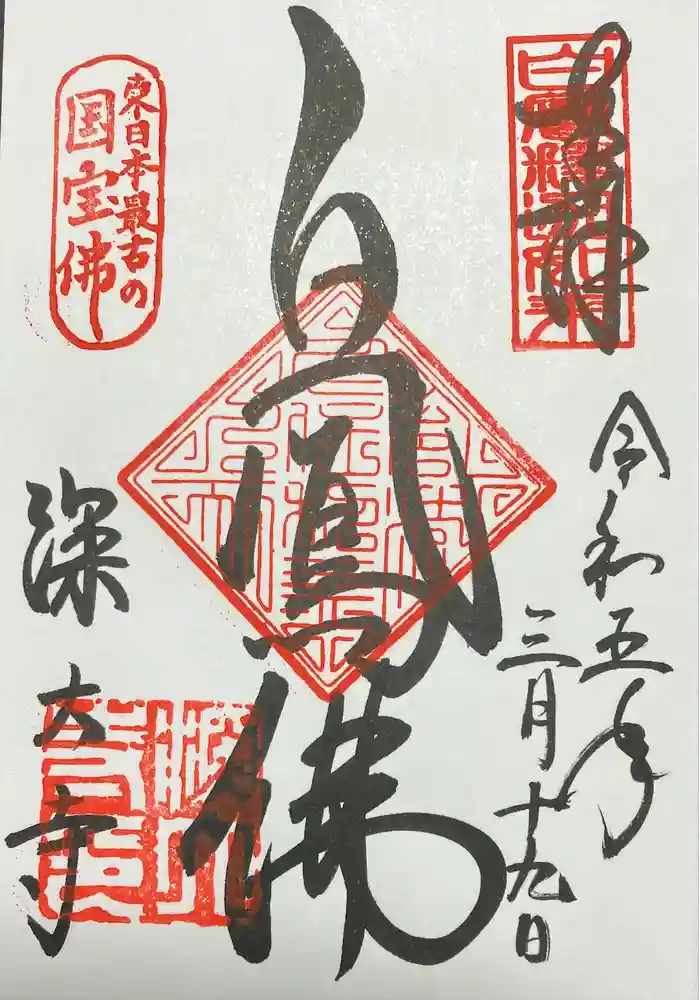 奉拝
令和五年
三月十九日
白鳳佛
東日本最古の
国宝佛
深大寺